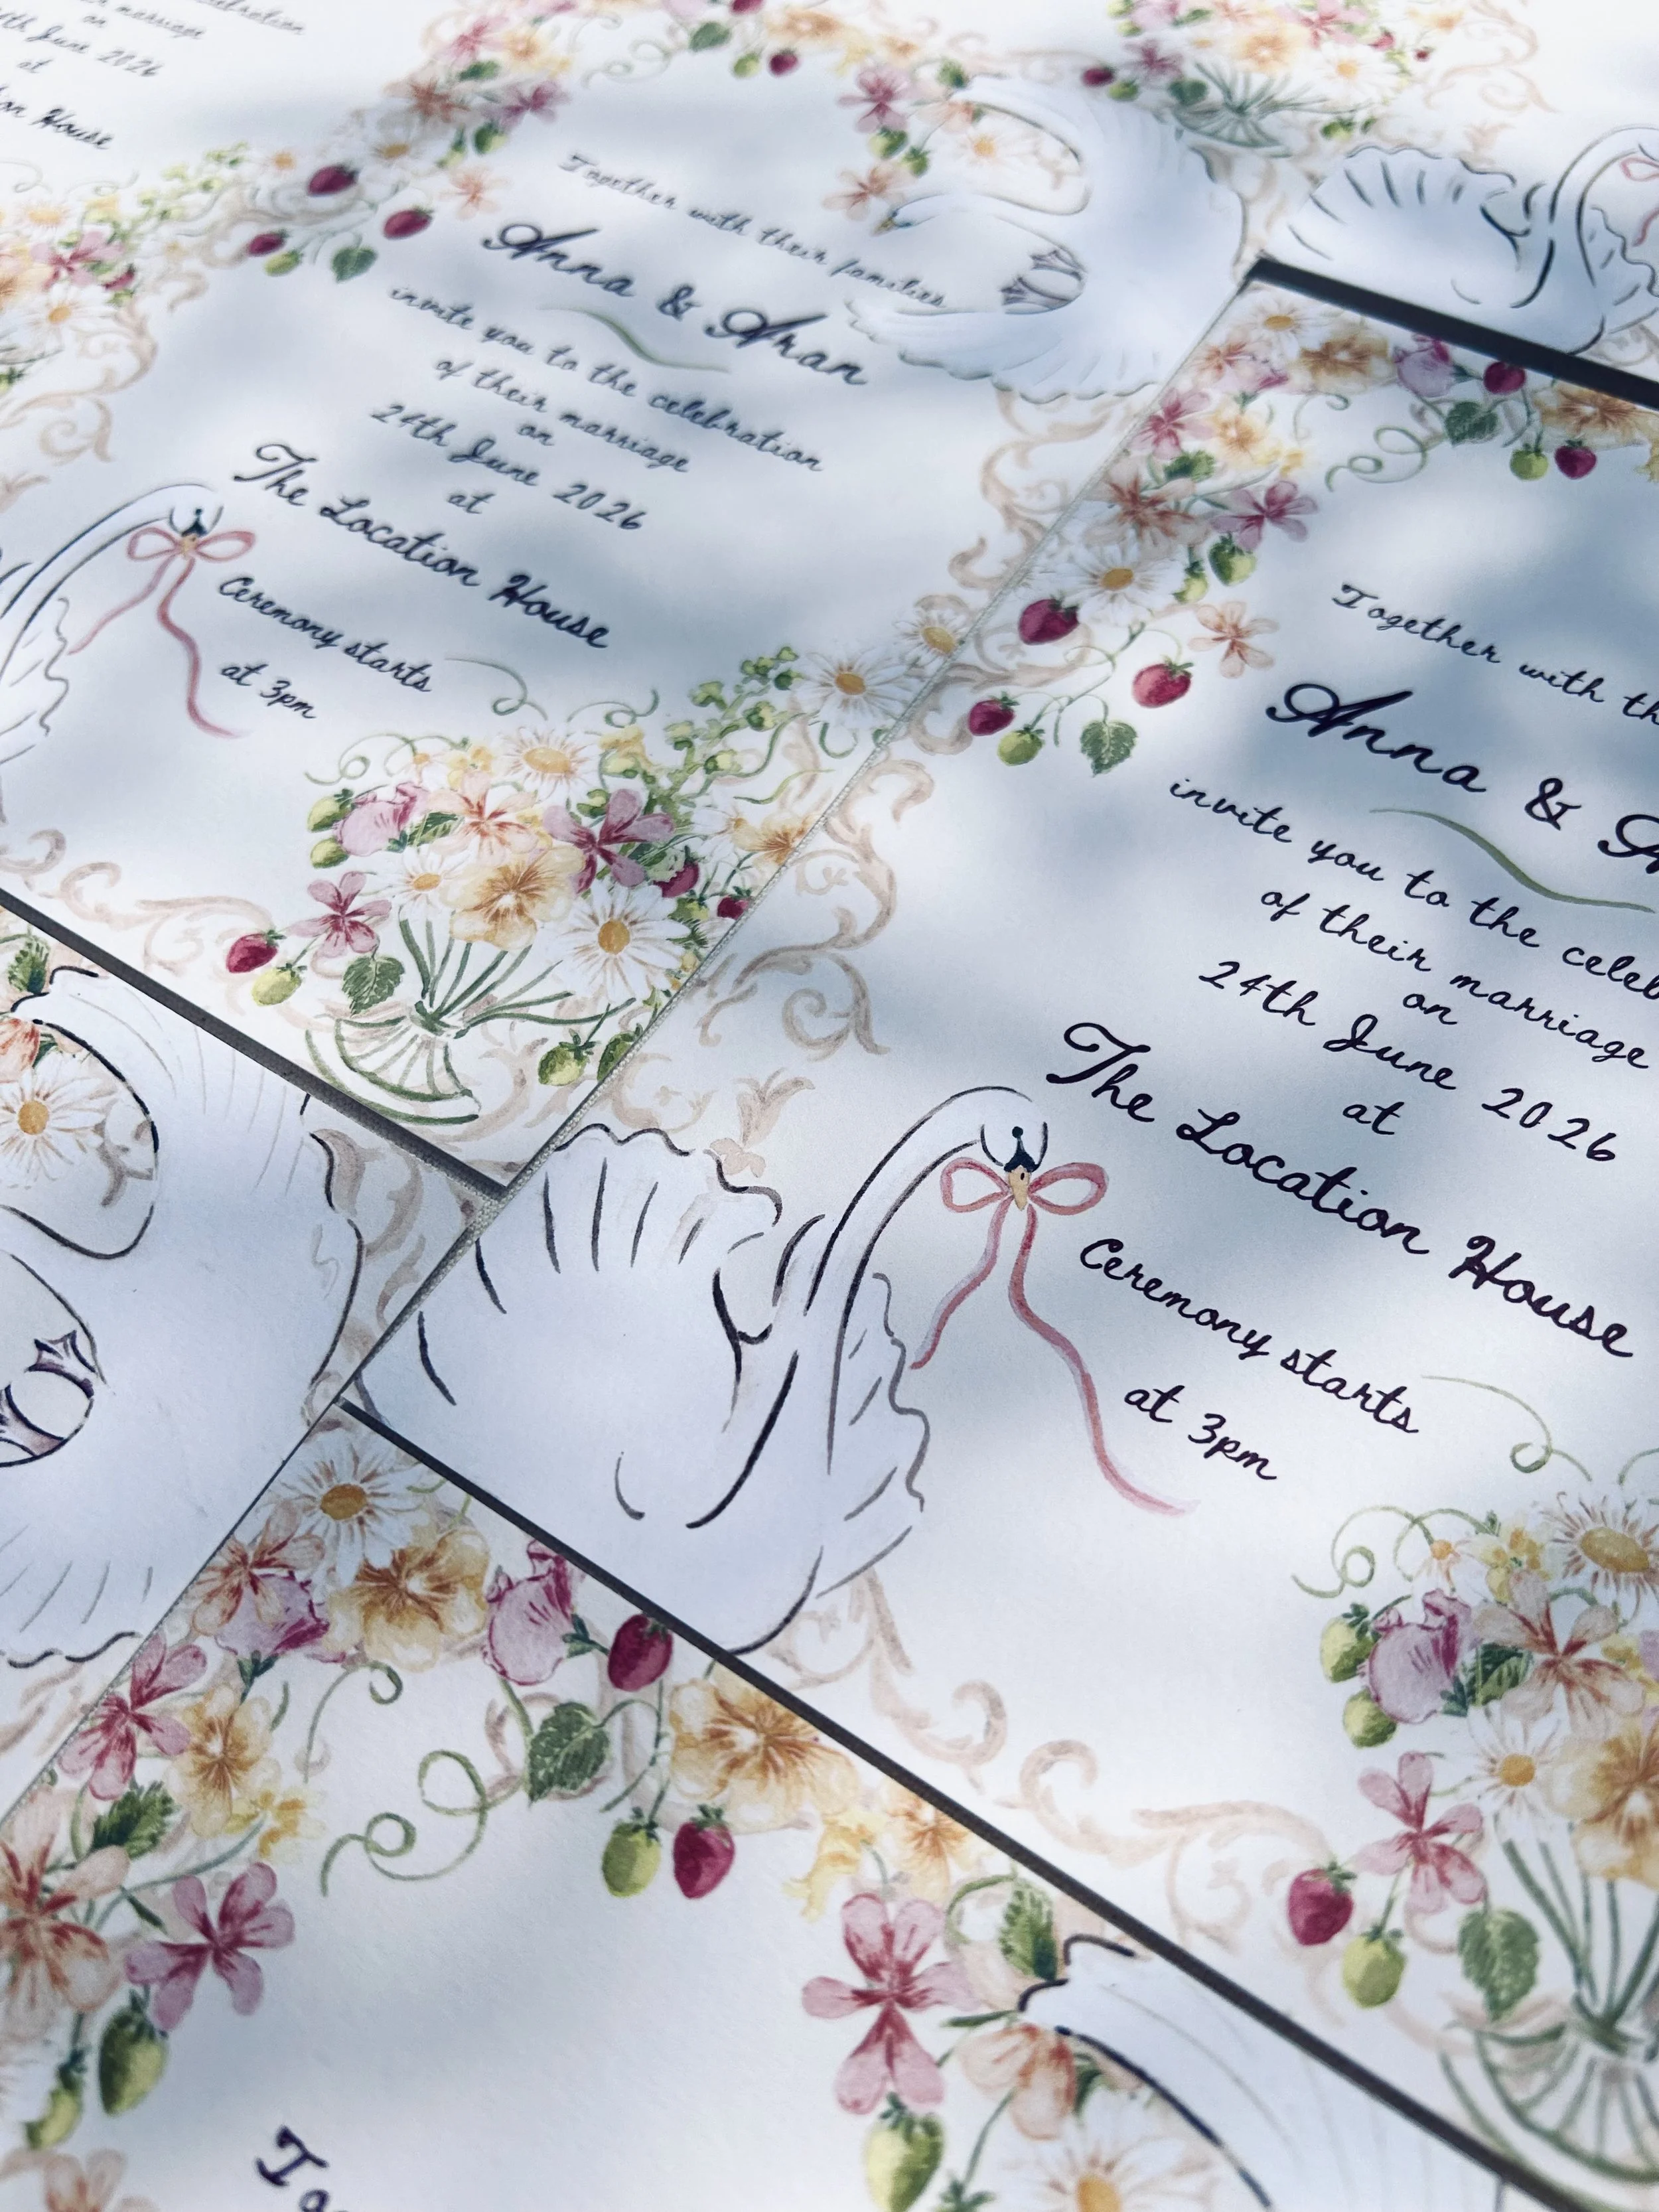 marriage
on
June 2026
at
House
Together with their families
Anna & Aran
invite you to the celebration
of their marriage
on
24th June 2026
at
The Location House
Ceremony starts
at 3pm
Together with
Anna &
invite you to the
of their marriage
on
24th June 2026
at
The Location House
Ceremony starts
at 3pm